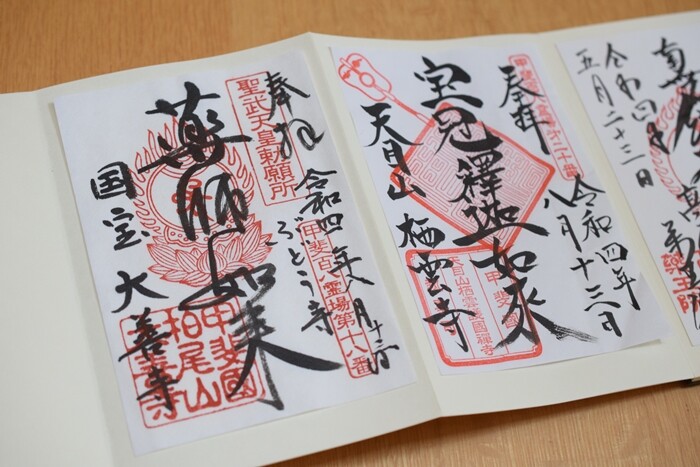 奉拝
令和四年八月十三日
ぶどう寺
聖武天皇勅願所
甲斐百八霊場第十八番
薬師如来
国宝 大善寺
甲斐國
柏尾山
大善寺
奉拝
令和四年
八月十三日
宝冠釋迦如来
天目山 栖雲寺
天目山栖雲
令和四年
五月二十三日
薬王院